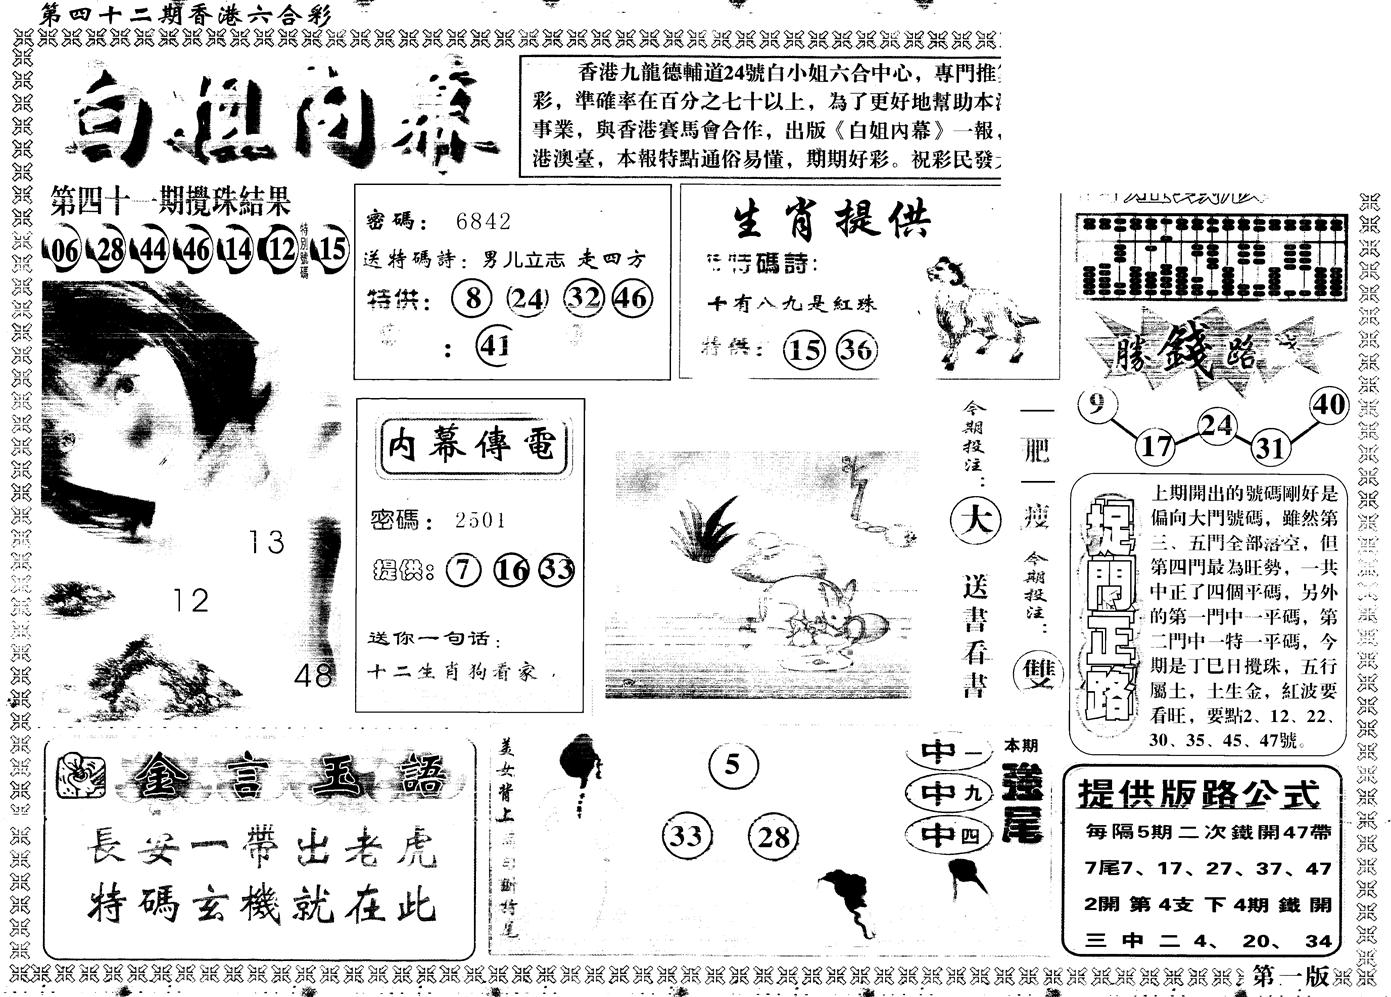 第四十二期香港六合彩
白姐內幕
香港九龍德輔道24號白小姐六合中心，專門推
彩，準確率在百分之七十以上，為了更好地幫助本
事業，與香港賽馬會合作，出版《白姐內幕》一報，
港澳臺，本報特點通俗易懂，期期好彩。祝彩民發
第四十一期攪珠結果
06 28 44 46 14 12 特別號碼 15
密碼： 6842
送特碼詩：男儿立志 走四方
特供： 8 24 32 46
： 41
生肖提供
特碼詩：
十有八九是紅珠
特供： 15 36
勝錢路
9 17 24 31 40
13
12
48
內幕傳電
密碼： 2501
提供： 7 16 33
送你一句话：
十二生肖狗看家
今期投注：
大
送書看書
一肥一瘦
今期投注：
雙
捉門正路
上期開出的號碼剛好是
偏向大門號碼，雖然第
三、五門全部落空，但
第四門最為旺勢，一共
中正了四個平碼，另外
的第一門中一平碼，第
二門中一特一平碼，今
期是丁巳日攪珠，五行
屬土，土生金，紅波要
看旺，要點2、12、22、
30、35、45、47號。
金言玉語
長安一帶出老虎
特碼玄機就在此
美女背上
特尾
5
33 28
中一
中九
中四
本期
強尾
提供版路公式
每隔5期二次鐵開47帶
7尾7、17、27、37、47
2開第4支下4期鐵開
三中二4、20、34
第一版